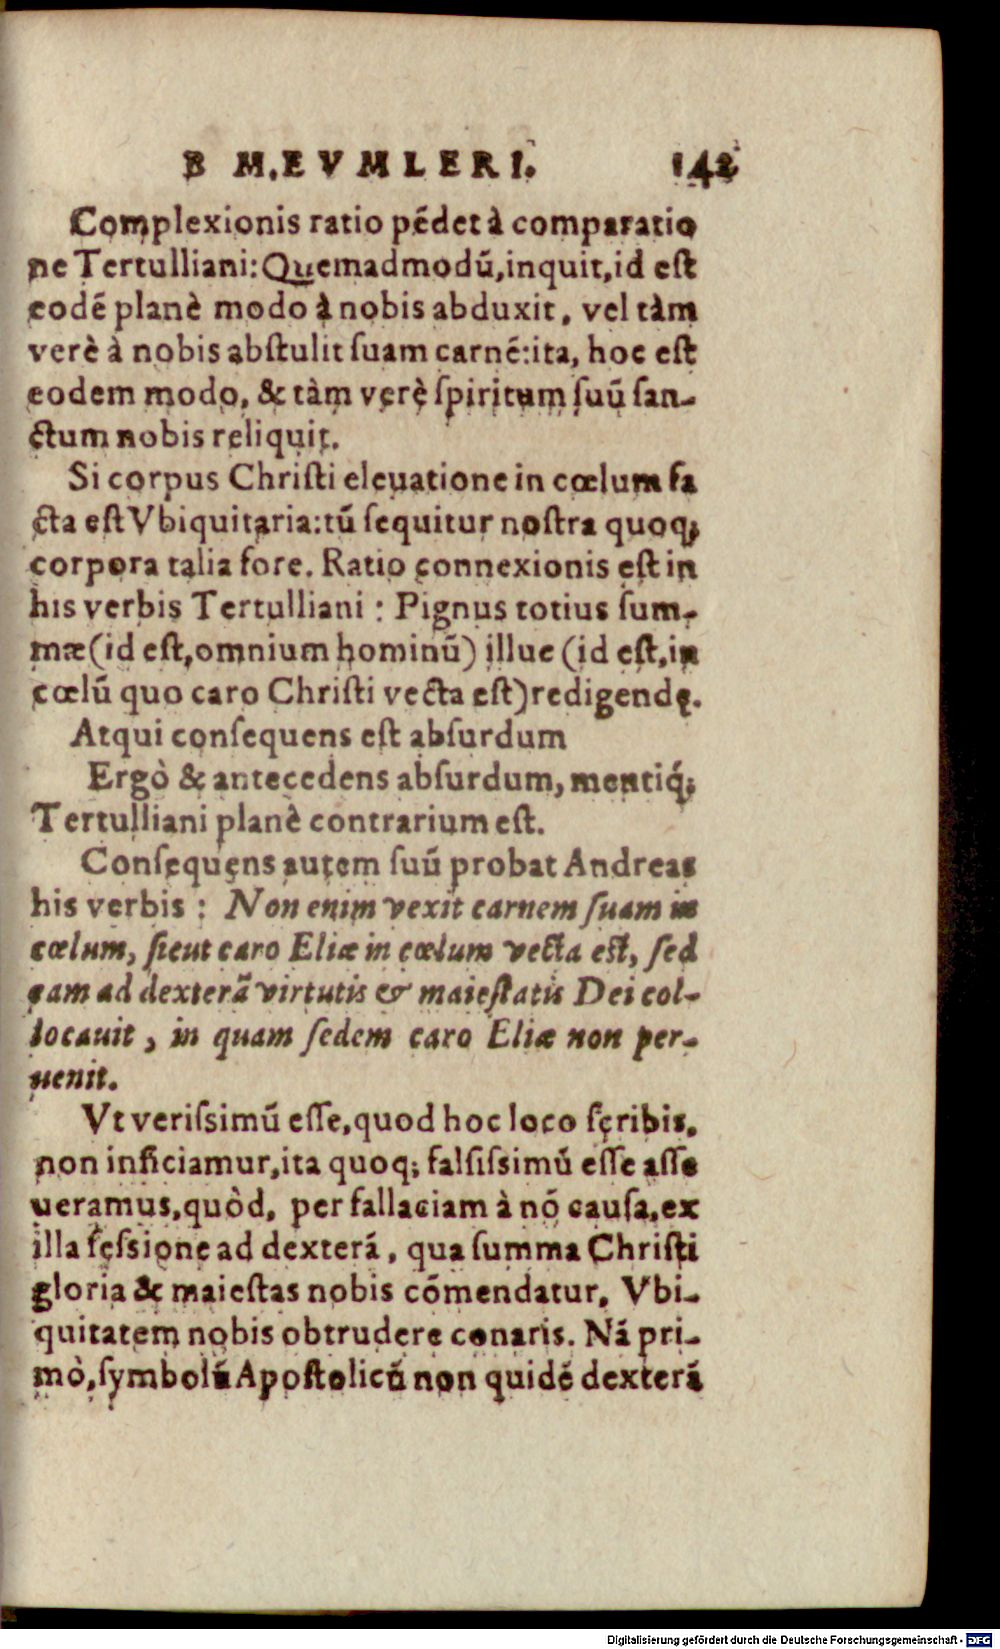 B M. EVMLERI. 142
Complexionis ratio pēdet à comparatio
ne Tertulliani: Quemadmodū, inquit, id est
eodē planè modo à nobis abduxit, vel tàm
verè à nobis abstulit suam carnē: ita, hoc est
eodem modo, & tàm verè spiritum suū san-
ctum nobis reliquit.
Si corpus Christi eleuatione in cœlum fa
cta est Vbiquitaria: tū sequitur nostra quoq;
corpora talia fore. Ratio connexionis est in
his verbis Tertulliani : Pignus totius sum-
mæ (id est, omnium hominū) illuc (id est, in
cœlū quo caro Christi vecta est) redigendę.
Atqui consequens est absurdum
Ergò & antecedens absurdum, mentiq́;
Tertulliani planè contrarium est.
Consequens autem suū probat Andreas
his verbis : Non enim vexit carnem suam in
cœlum, sicut caro Eliæ in cœlum vecta est, sed
eam ad dexterā virtutis & maiestatis Dei col-
locauit , in quam sedem caro Eliæ non per-
uenit.
Vt verissimū esse, quod hoc loco scribis,
non inficiamur, ita quoq; falsissimū esse asse
ueramus, quòd, per fallaciam à nō causa, ex
illa sessione ad dexterā, qua summa Christi
gloria & maiestas nobis cōmendatur, Vbi-
quitatem nobis obtrudere conaris. Nā pri-
mò, symbolū Apostolicū non quidē dexterā
Digitalisierung gefördert durch die Deutsche Forschungsgemeinschaft - DFG